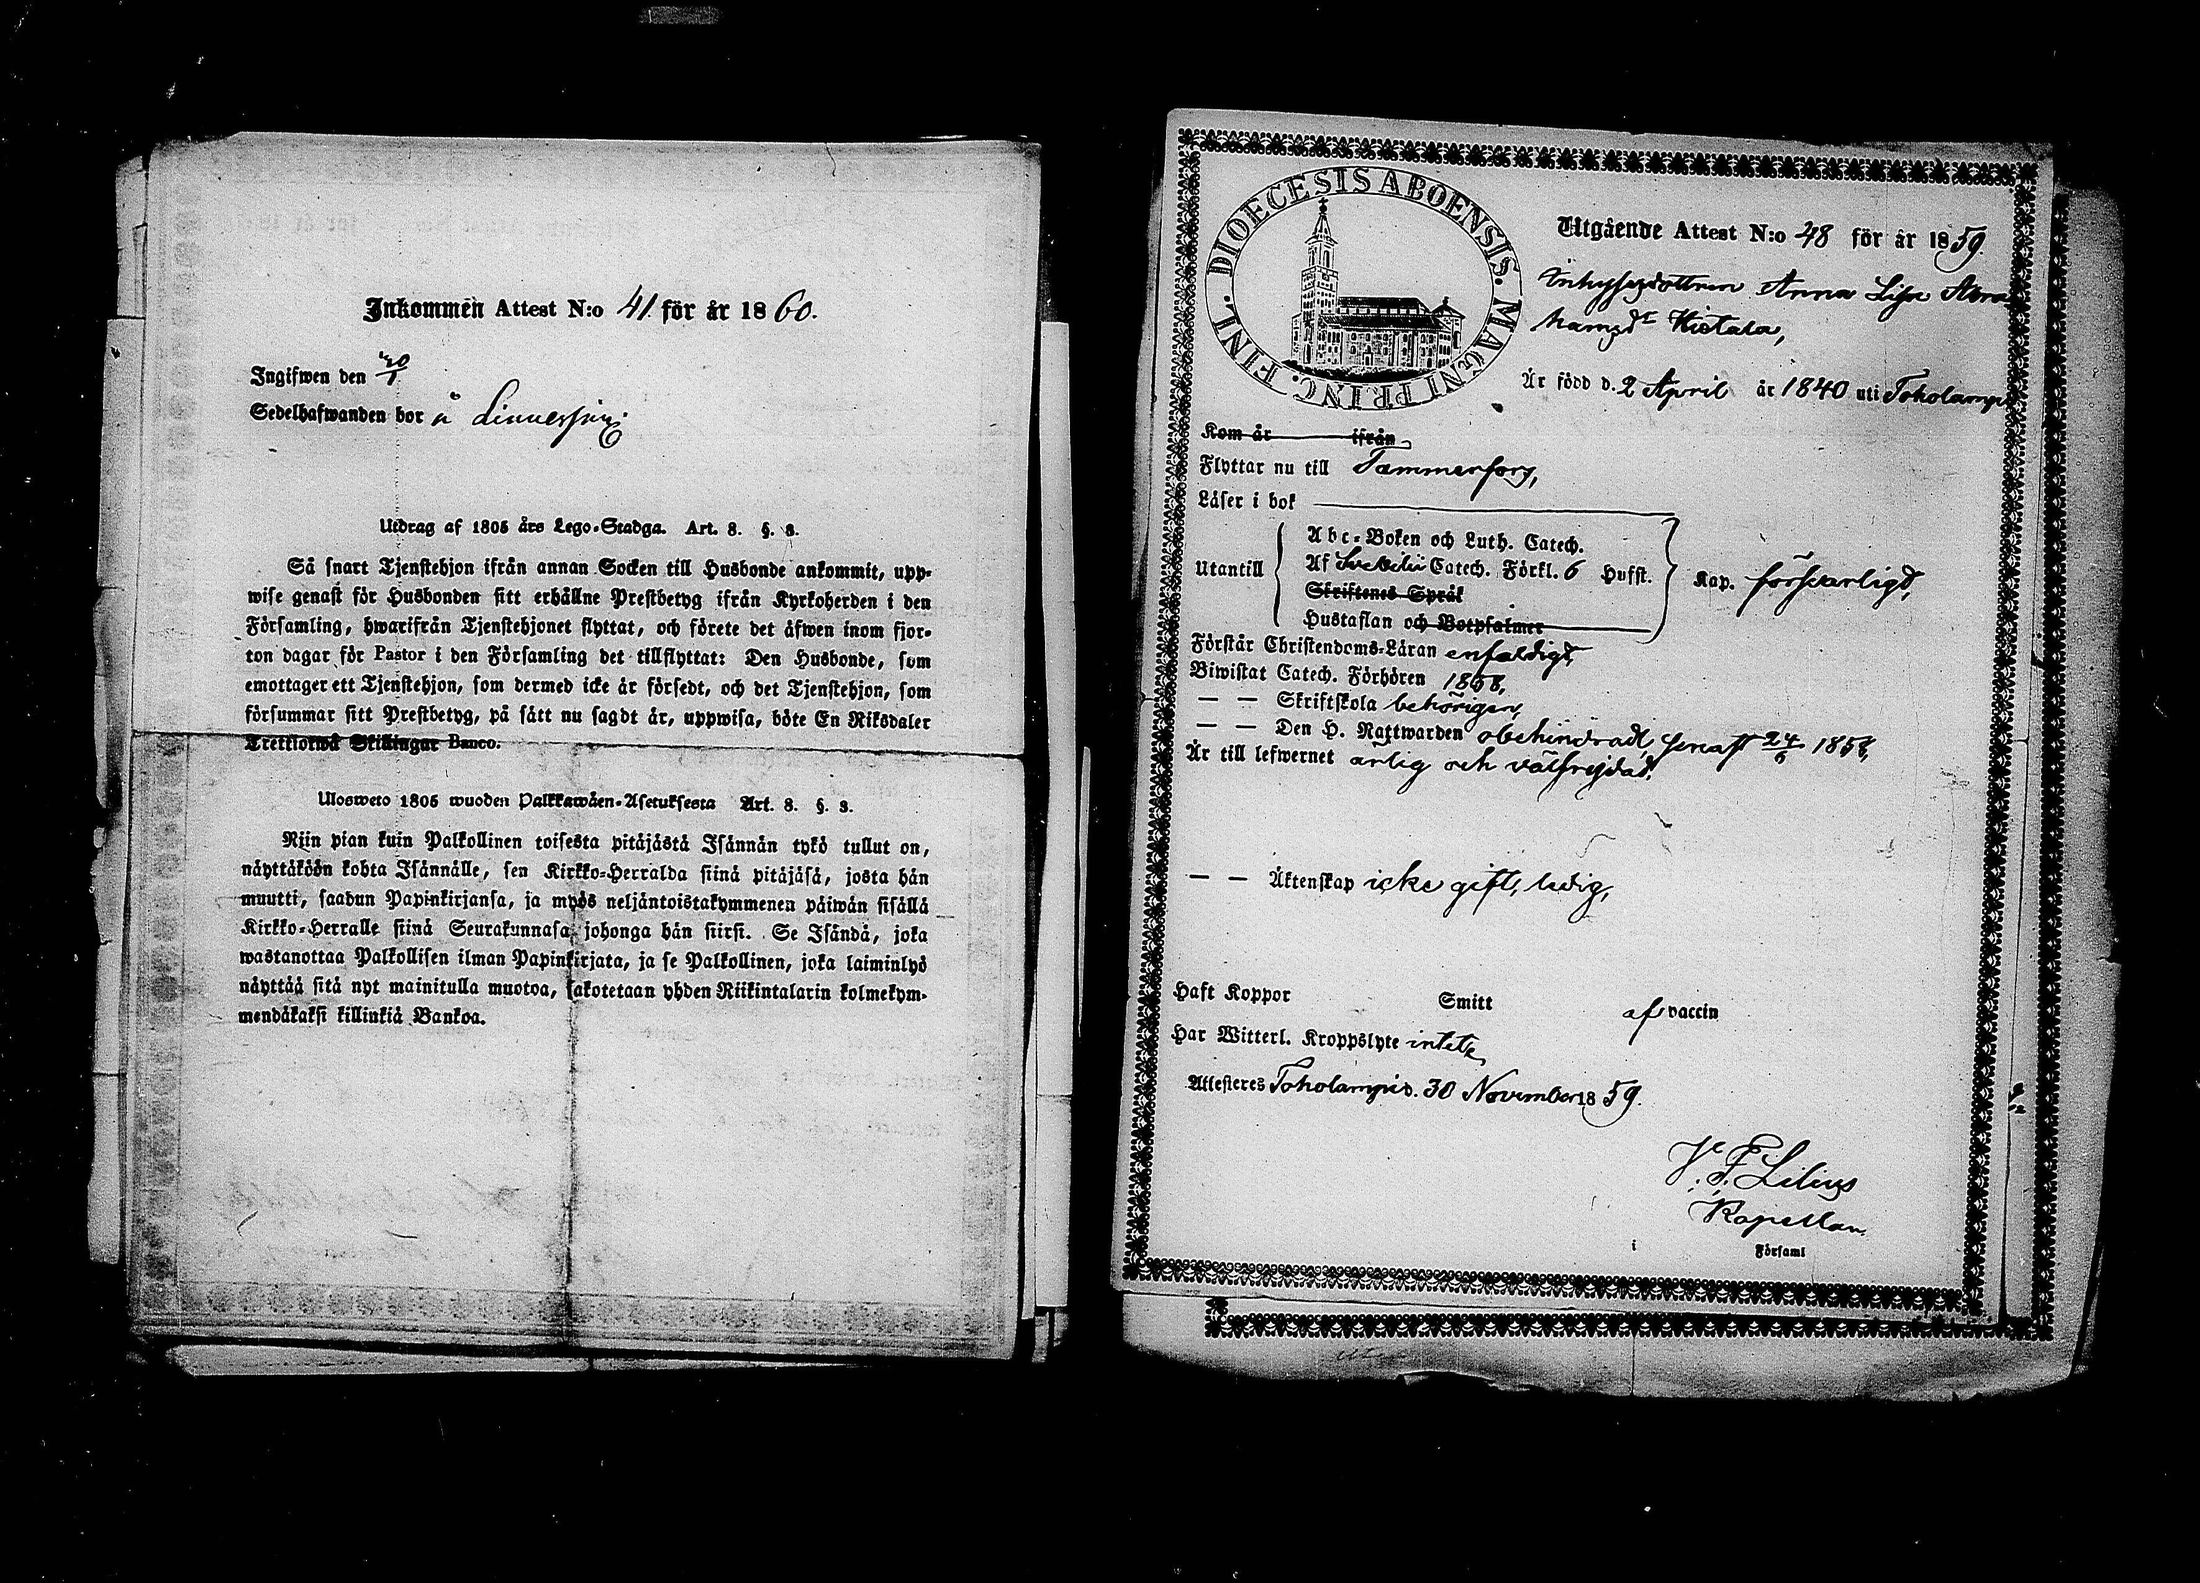 Inkommen Attest N:o 41 för år 1860.
Ingifwen den 20/1
Sedelhafwanden bor å
Utdrag af 1805 års Lego-Stadga. Art. 8. §. 3.
Så snart Tjenstehjon ifrån annan Socken till Husbonde ankommit, upp-
wise genast för Husbonden sitt erhållne Prestbetyg ifrån Kyrkoherden i den
Församling, hwarifrån Tjenstehjonet flyttat, och förete det äfwen inom fjor-
ton dagar för Pastor i den Församling det tillflyttat: Den Husbonde, som
emottager ett Tjenstehjon, som dermed icke är försedt, och det Tjenstehjon, som
försummar sitt Prestbetyg, på sätt nu sagdt är, uppwisa, böte En Riksdaler
Trettiotwå Skillingar Banco.
Ulosweto 1805 wuoden Palkkawäen-Asetuksesta Art. 8. §. 3.
Niin pian kuin Palkollinen toisesta pitäjästä Isännän tykö tullut on,
näyttäköön kohta Isännälle, sen Kirkko-Herralda siinä pitäjäsä, josta hän
muutti, saadun Papinkirjansa, ja myös neljäntoistakymmenen päiwän sisällä
Kirkko-Herralle siinä Seurakunnasa johonga hän siirsi. Se Isändä, joka
wastanottaa Palkollisen ilman Papinkirjata, ja se Palkollinen, joka laiminlyö
näyttää sitä nyt mainitulla muotoa, sakotetaan yhden Riikintalarin kolmekym-
mendäkaksi killinkiä Bankoa.
FINL. DIOECESIS ABOENSIS. MAGNI PRINC.
Utgående Attest N:o 48 för år 1859.
Inhysesdottren Anna Lisa Abra
hamsdr Hietala,
Är född d. 2 April år 1840 uti Toholampi
Kom år ifrån
Flyttar nu till Tammerfors,
Läser i bok
Utantill
Abc-Boken och Luth. Catech.
Af Svebelii Catech. Förkl. 6 Hufst.
Skriftenes Språk
Hustaflan och Botpsalmer
Kap. försvarligt,
Förstår Christendoms-Läran enfaldigt,
Biwistat Catech. Förhören 1858,
— — Skriftskola behörigen,
— — Den H. Nattwarden obehindrad, senast 24/6 1858,
Är till lefwernet ärlig och välfrejdad.
— — Äktenskap icke gift, ledig,
Haft Koppor Smitt af vaccin
Har Witterl. Kroppslyte intet,
Attesteres Toholampi d. 30 November 1859.
J. F. Lilius
Kapellan
i Församl